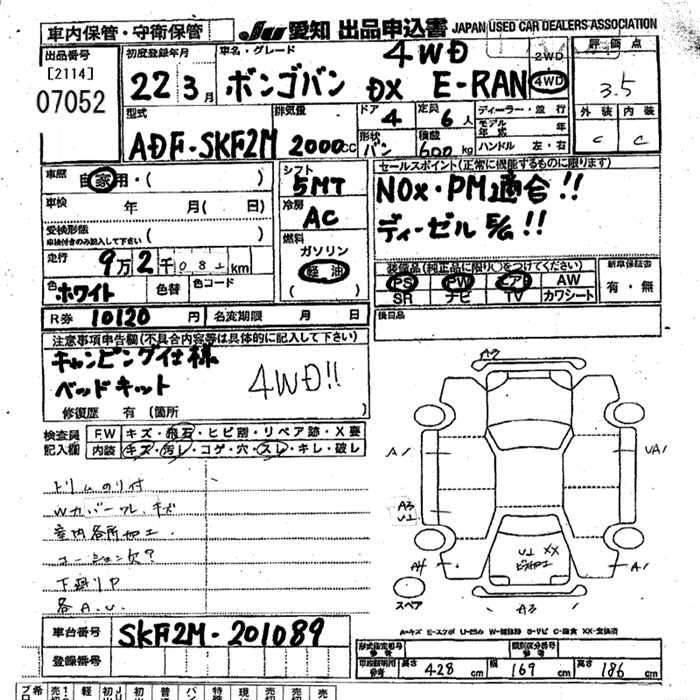 車内保管・守衛保管 JU 愛知 出品申込書 JAPAN USED CAR DEALERS ASSOCIATION
出品番号 初度登録年月 車名・グレード 4WD 2WD 評価点
[2114] 22 3月 ボンゴバン DX E-RAN 4WD 3.5
07052
型式 排気量 ドア 4 定員 6人 ディーラー・並行 外装 内装
ADF-SKF2M 2000cc 形状 バン 積載 600kg モデル年式 年 C C
ハンドル 左・右
車歴 自家用・( ) シフト セールスポイント(正常に機能するものに限ります)
5MT NOx・PM適合!!
車検 年 月( 日) 冷房 AC ディーゼル E/G!!
受検形態 ( )
車検付きのみ記入して下さい 燃料
走行 9万2千082km ガソリン 装備品(純正品に限り○をつけてください) 新車保証書
色 ホワイト 色替 色コード 軽油 PS PW エアB AW 有・無
( ) SR ナビ TV カワシート
R券 10120円 名変期限 月 日 後日品
注意事項申告欄(不具合内容等は具体的に記入して下さい)
キャンピング仕様
ベッドキット 4WD!!
修復歴 有 (箇所
A2
検査員 FW キズ・飛石・ヒビ割・リペア跡・X要
記入欄 内装 キズ・汚レ・コゲ・穴・スレ・キレ・破レ
A1 UA1
トリムのリ付
Wカバーフレ、キズ A3
室内各所加工 U1
コーション欠? U1 XX
下廻りP A4 A1
各A.U. スペア A3
A-キズ E-エクボ U-凹み W-補修跡 S-サビ C-腐食 XX-交換済
車台番号 SKF2M-201089
型式指定番号 参考 類別区分番号 参考
登録番号 車検証明用 参考 長さ 428cm 幅 169cm 高さ 186cm